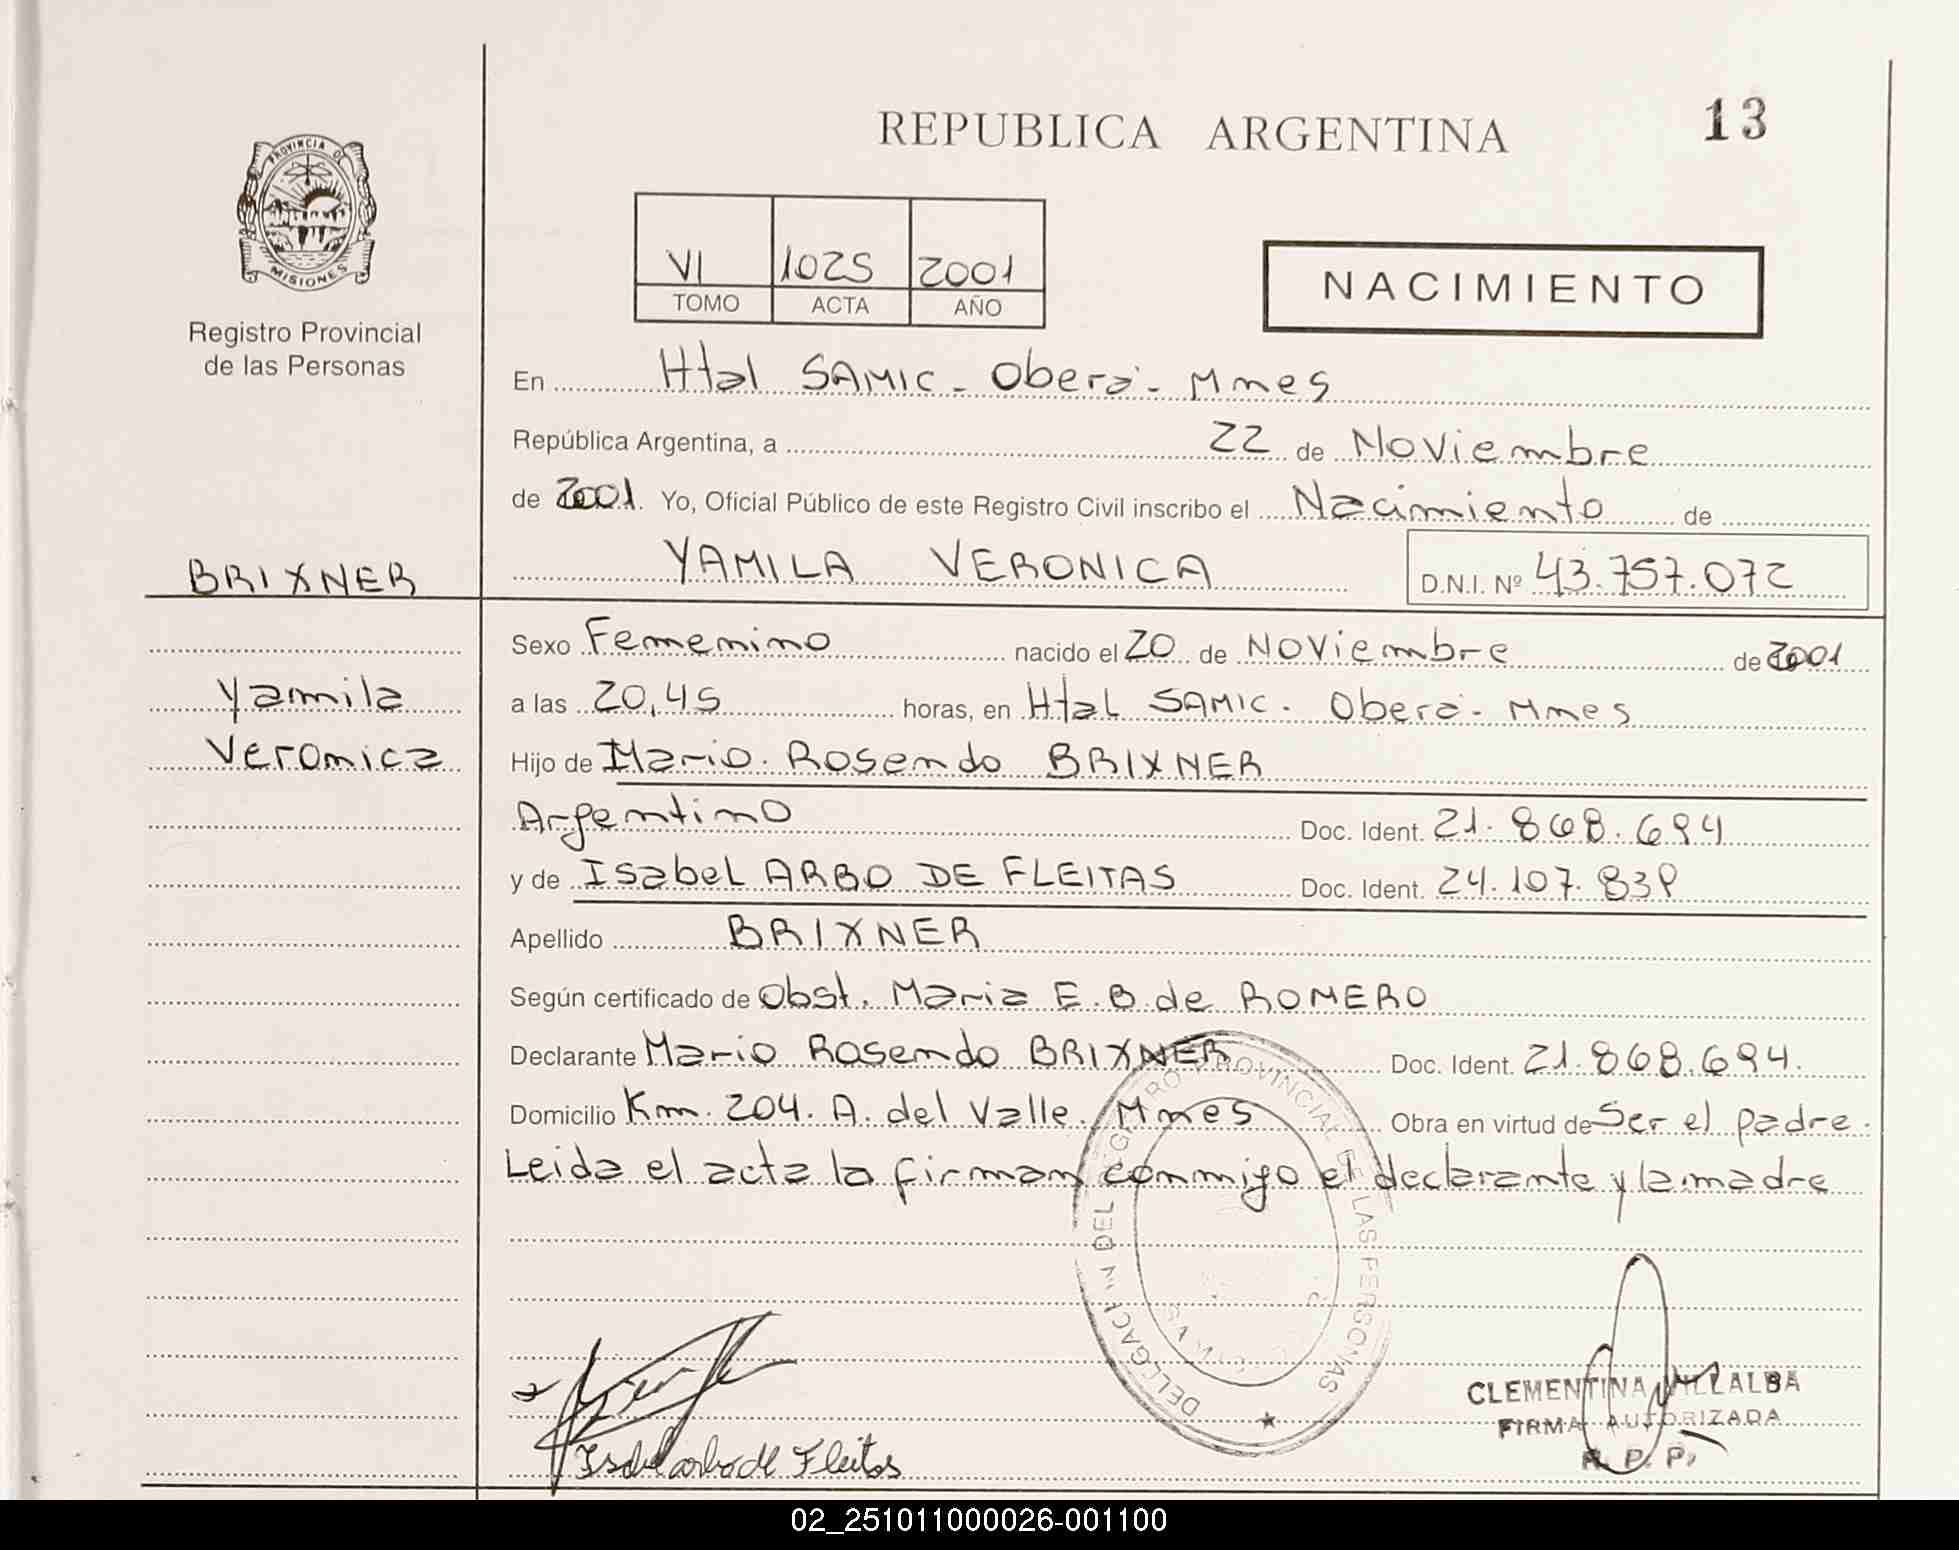 REPUBLICA ARGENTINA
13
PROVINCIA DE
MISIONES
Registro Provincial
de las Personas
VI 1025 2001
TOMO ACTA AÑO
NACIMIENTO
En Htal SAMIC - Oberá - Mnes
República Argentina, a 22 de Noviembre
de 2001. Yo, Oficial Público de este Registro Civil inscribo el Nacimiento de
BRIXNER
YAMILA VERONICA D.N.I. Nº 43.757.072
Sexo Femenino nacido el 20 de Noviembre de 2001
Yamila
a las 20,45 horas, en Htal SAMIC. Oberá - Mnes
Veronica
Hijo de Mario Rosendo BRIXNER
Argentino Doc. Ident. 21.868.694
y de Isabel ARBO DE FLEITAS Doc. Ident. 24.107.839
Apellido BRIXNER
Según certificado de Obst. Maria E.B. de ROMERO
Declarante Mario Rosendo BRIXNER Doc. Ident. 21.868.694.
Domicilio Km. 204. A. del Valle. Mnes Obra en virtud de Ser el padre.
Leida el acta la firman conmigo el declarante y la madre
DEL REGISTRO PROVINCIAL DE LAS PERSONAS
CLEMENTINA VILLALBA
FIRMA AUTORIZADA
R. P. P.
Isabel arbo de Fleitas
02_251011000026-001100